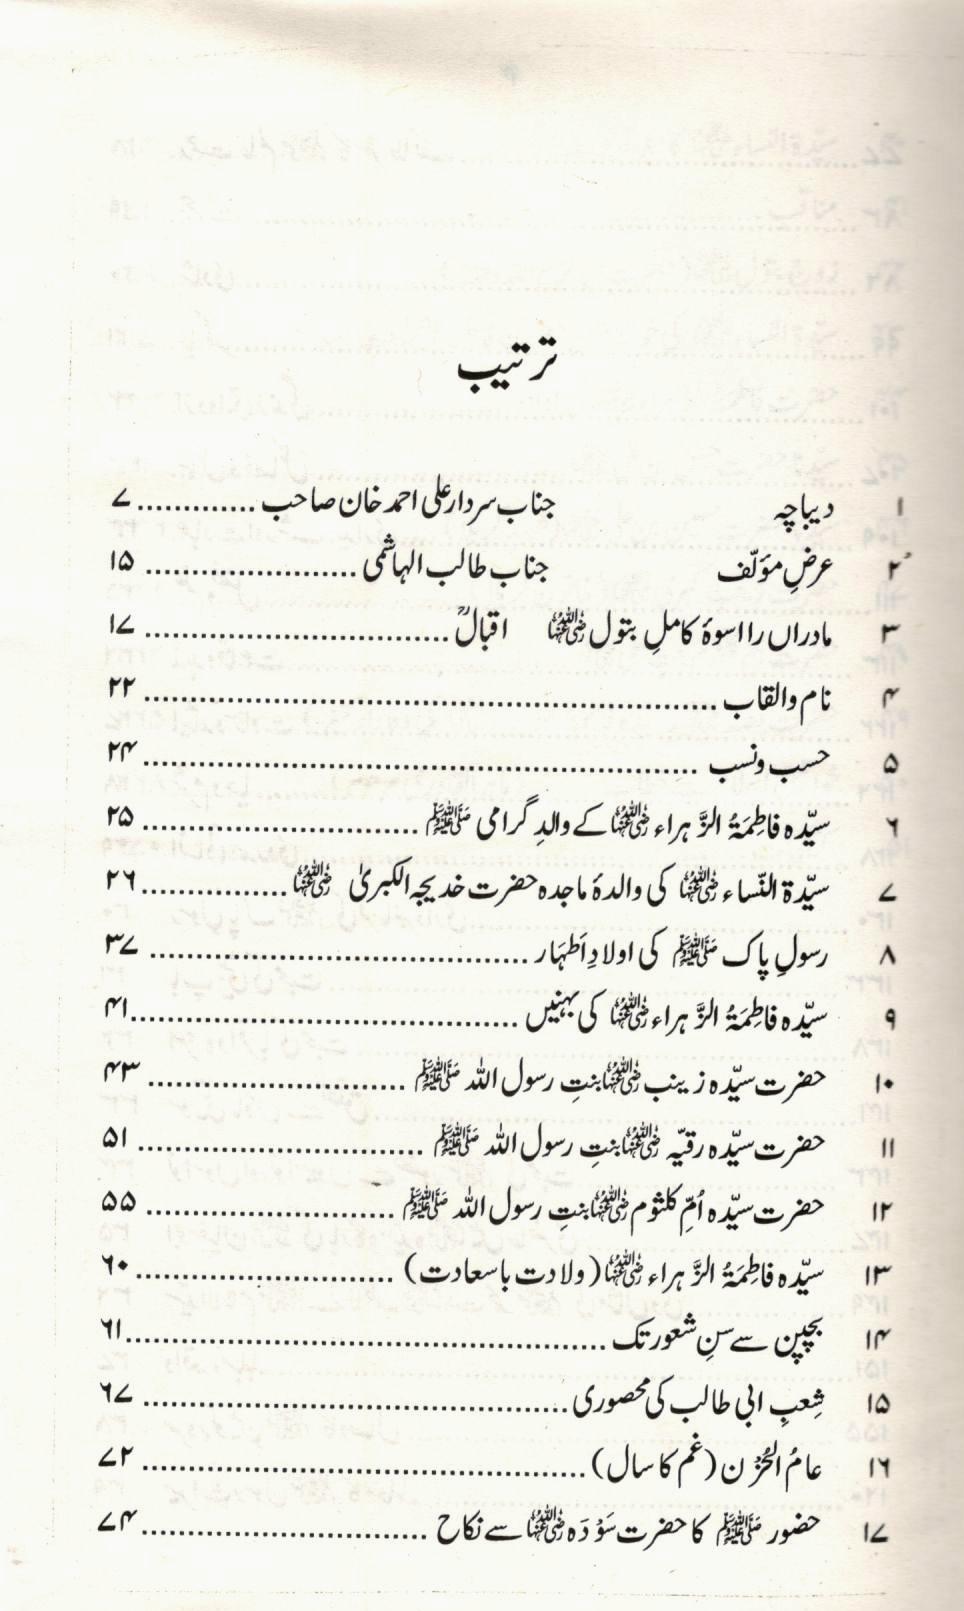 ترتیب
۱ دیباچہ جناب سردار علی احمد خان صاحب ............. ۷
۲ عرضِ مؤلّف جناب طالب الہاشمی ....................... ۱۵
۳ مادراں را اسوۂ کاملِ بتول رضی اللہ عنہا اقبالؒ ................................. ۱۷
۴ نام و القاب ............................................................... ۲۲
۵ حسب و نسب ............................................................. ۲۴
۶ سیّدہ فاطِمَۃُ الزَّہراء رضی اللہ عنہا کے والدِ گرامی ﷺ .............................. ۲۵
۷ سیّدۃ النّساء رضی اللہ عنہا کی والدۂ ماجدہ حضرت خدیجہ الکبریٰ رضی اللہ عنہا ................ ۲۶
۸ رسولِ پاک ﷺ کی اولادِ اَطہَار ......................................... ۳۷
۹ سیّدہ فاطِمَۃُ الزَّہراء رضی اللہ عنہا کی بہنیں .......................................... ۴۱
۱۰ حضرت سیّدہ زینب رضی اللہ عنہا بنتِ رسول اللہ ﷺ ............................ ۴۳
۱۱ حضرت سیّدہ رقیّہ رضی اللہ عنہا بنتِ رسول اللہ ﷺ ............................... ۵۱
۱۲ حضرت سیّدہ اُمِّ کلثوم رضی اللہ عنہا بنتِ رسول اللہ ﷺ ........................... ۵۵
۱۳ سیّدہ فاطِمَۃُ الزَّہراء رضی اللہ عنہا (ولادت باسعادت) ............................ ۶۰
۱۴ بچپن سے سنِ شعور تک .................................................... ۶۱
۱۵ شِعبِ ابی طالب کی محصوری .............................................. ۶۷
۱۶ عامُ الحُزن (غم کا سال) ................................................ ۷۲
۱۷ حضور ﷺ کا حضرت سَوْدَہ رضی اللہ عنہا سے نکاح ............................... ۷۴